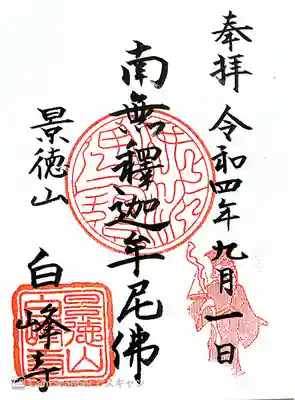 奉拝 令和四年九月一日
南無釋迦牟尼佛
景徳山 白峰寺